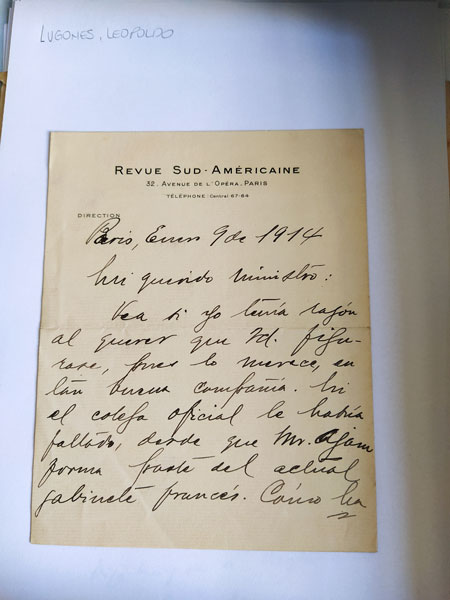 LUGONES, LEOPOLDO
REVUE SUD-AMÉRICAINE
32. AVENUE DE L'OPÉRA, PARIS
TÉLÉPHONE: Central 67-64
DIRECTION
Paris, Enero 9 de 1914
Mi querido ministro:
Vea si yo tenía razón
al querer que Vd. figu-
rase, pues lo merece, en
tan buena compañía. Ni
el colega oficial le habría
faltado, desde que Mr.
forma parte del actual
gabinete francés. Cómo ha